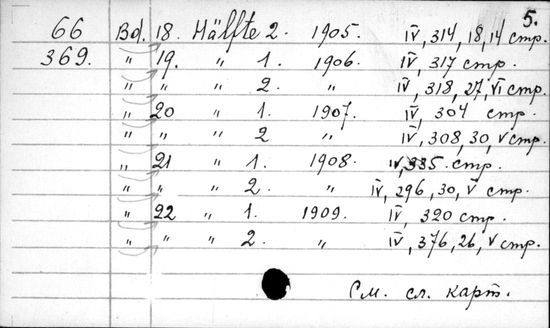 5.
66 Bd. 18. Hälfte 2. 1905. IV, 314, 18, 14 стр.
369. " 19. " 1. 1906. IV, 317 стр.
" " " 2. " IV, 318, 27, VI стр.
" 20 " 1. 1907. IV, 304 стр.
" " " 2 " IV, 308, 30, V стр.
" 21 " 1. 1908. IV, 335 стр.
" " " 2. " IV, 296, 30, V стр.
" 22 " 1. 1909. IV, 320 стр.
" " " 2. " IV, 376, 26, V стр.
См. сл. карт.